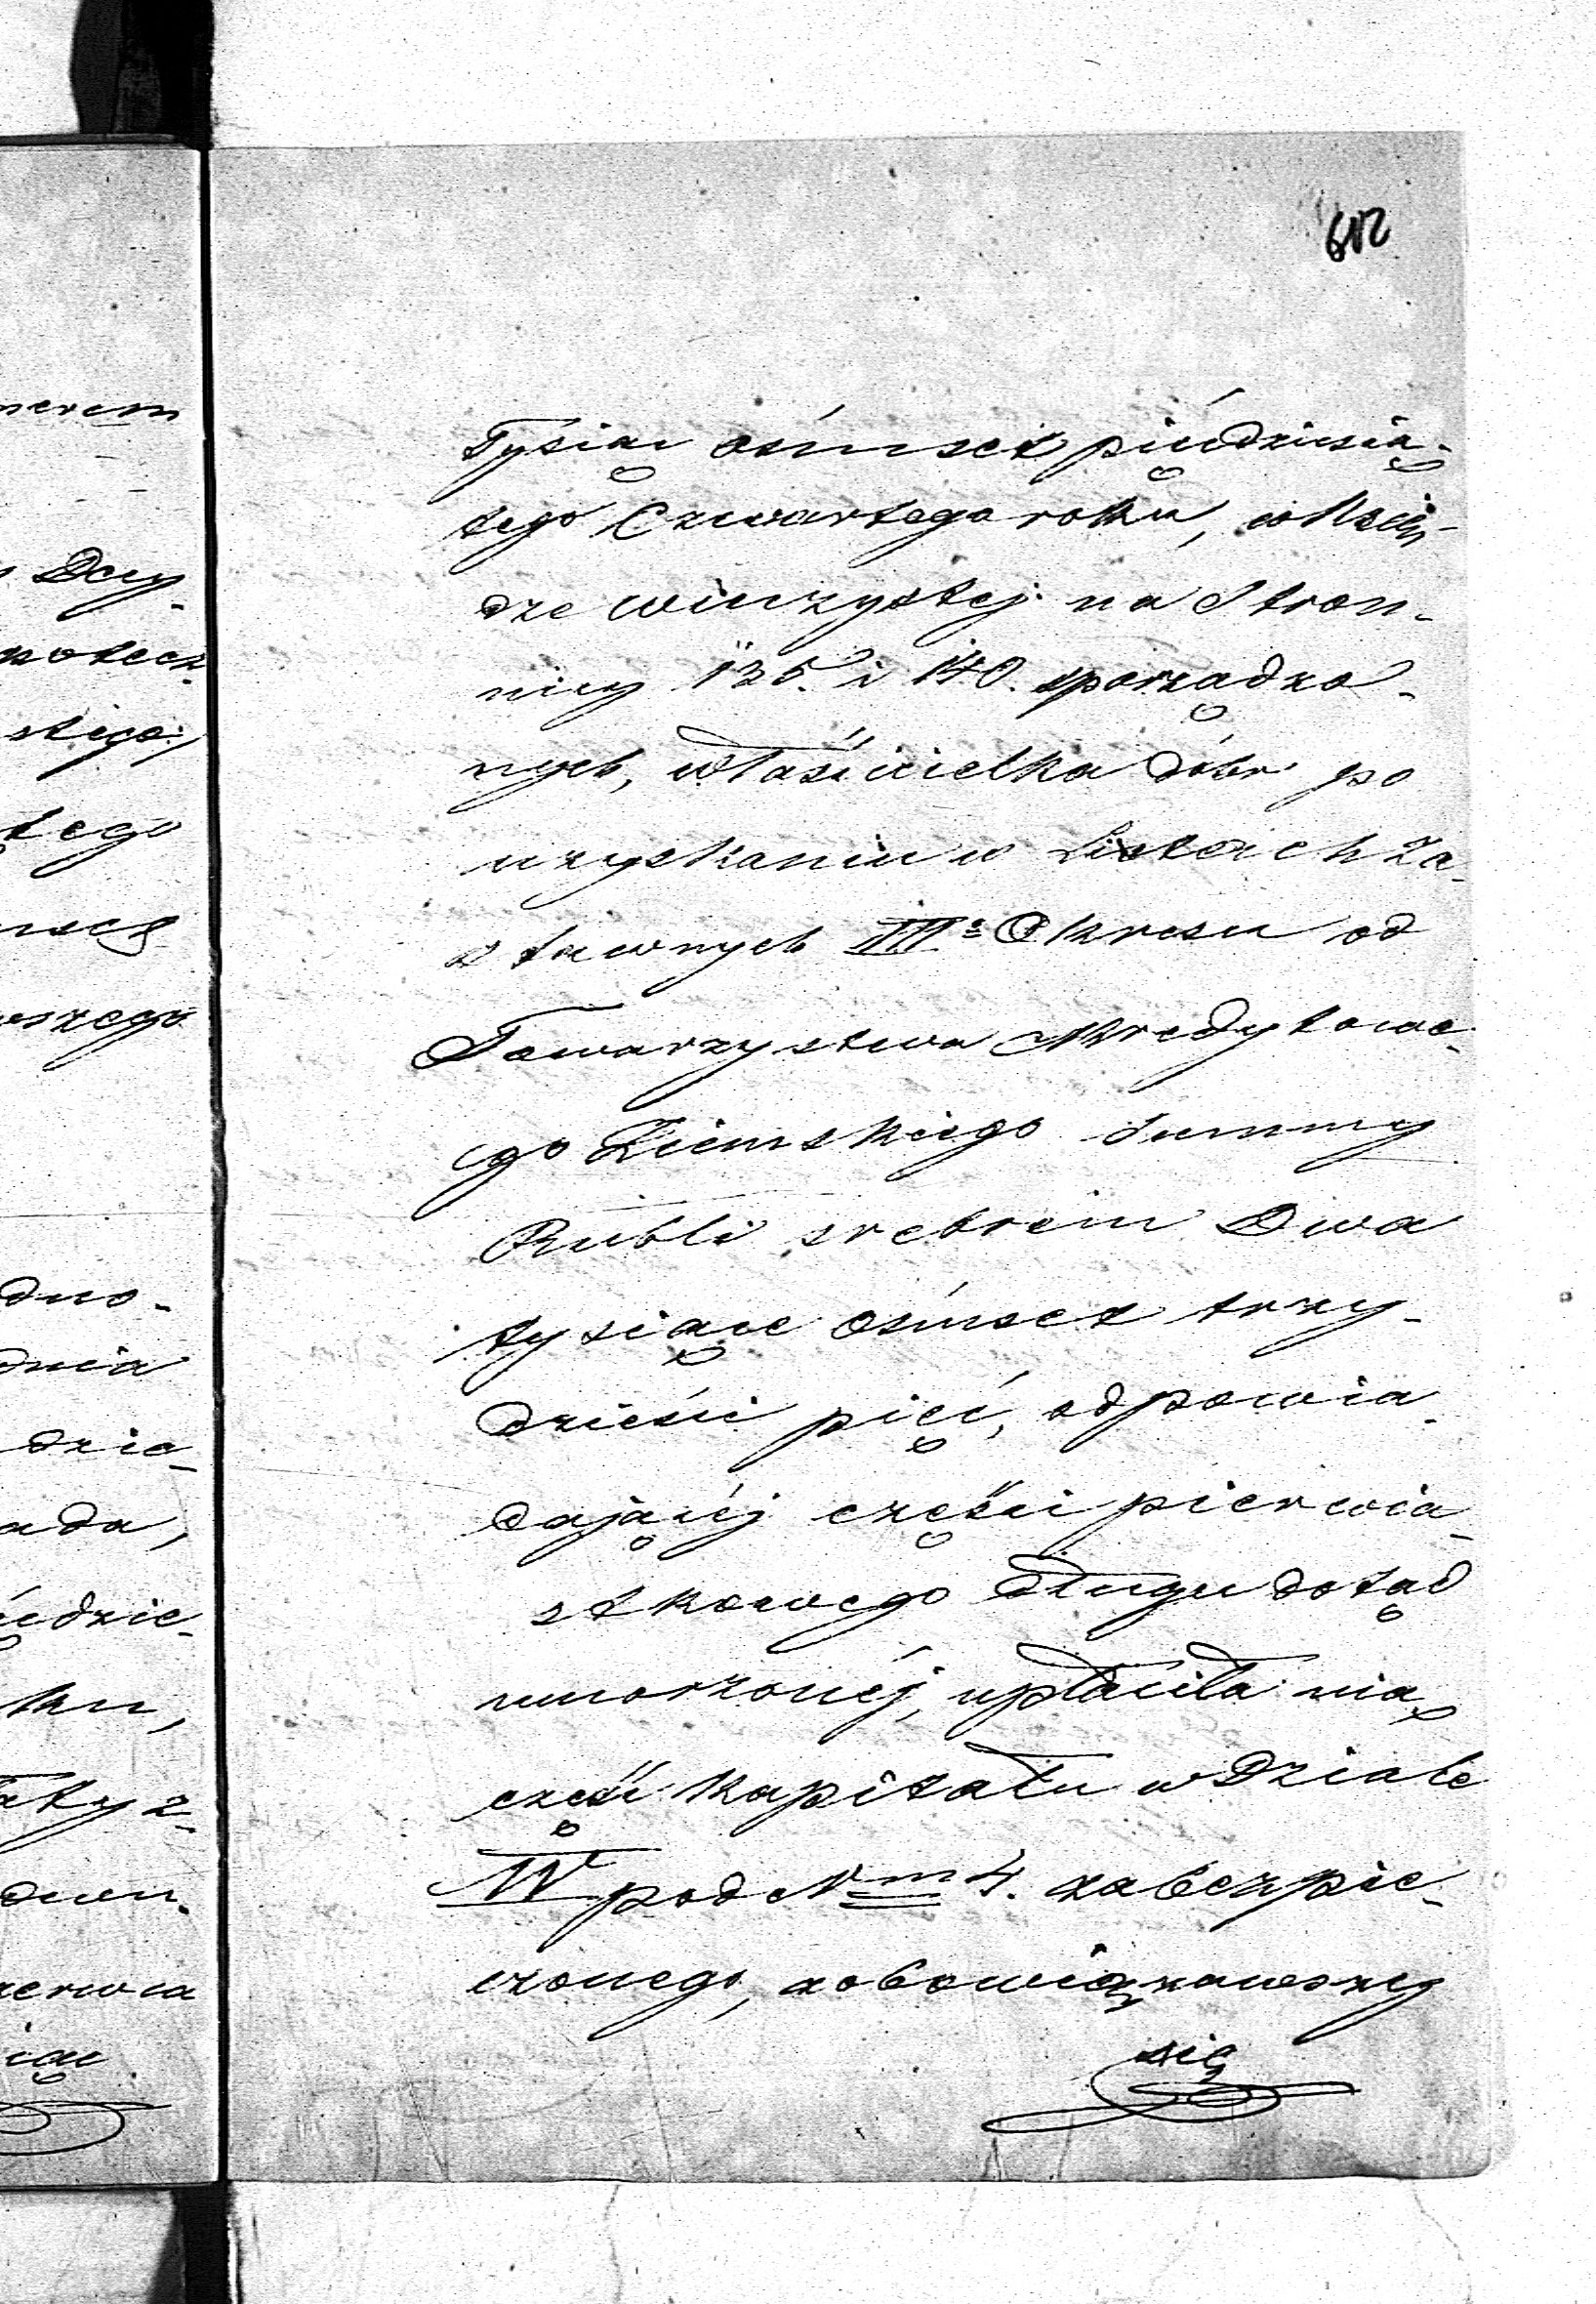 612
Tysiąc ośmset pięćdziesią-
tego Czwartego roku, w Księ-
dze wieczystej na Stron-
nicy 135. i 140. sporządzo-
nych, właścicielka dóbr po
uzyskaniu w Listach Za-
stawnych III° Okresu od
Towarzystwa Kredytowe-
go Ziemskiego summy
Rubli srebrem Dwa
tysiące ośmset trzy-
dzieści pięć, odpowia-
dającéj części pierwia-
stkowego długu dotąd
umorzonéj, upłaciła nią
część kapitału w Dziale
IV pod Nm 4. zabezpie-
czonego, zobowiązawszy
się
merem
Dcy-
skiego,
tego
wszego
dno-
dnia
dzia-
ada,
dzie-
ku,
dwu-
zerwca
iąc